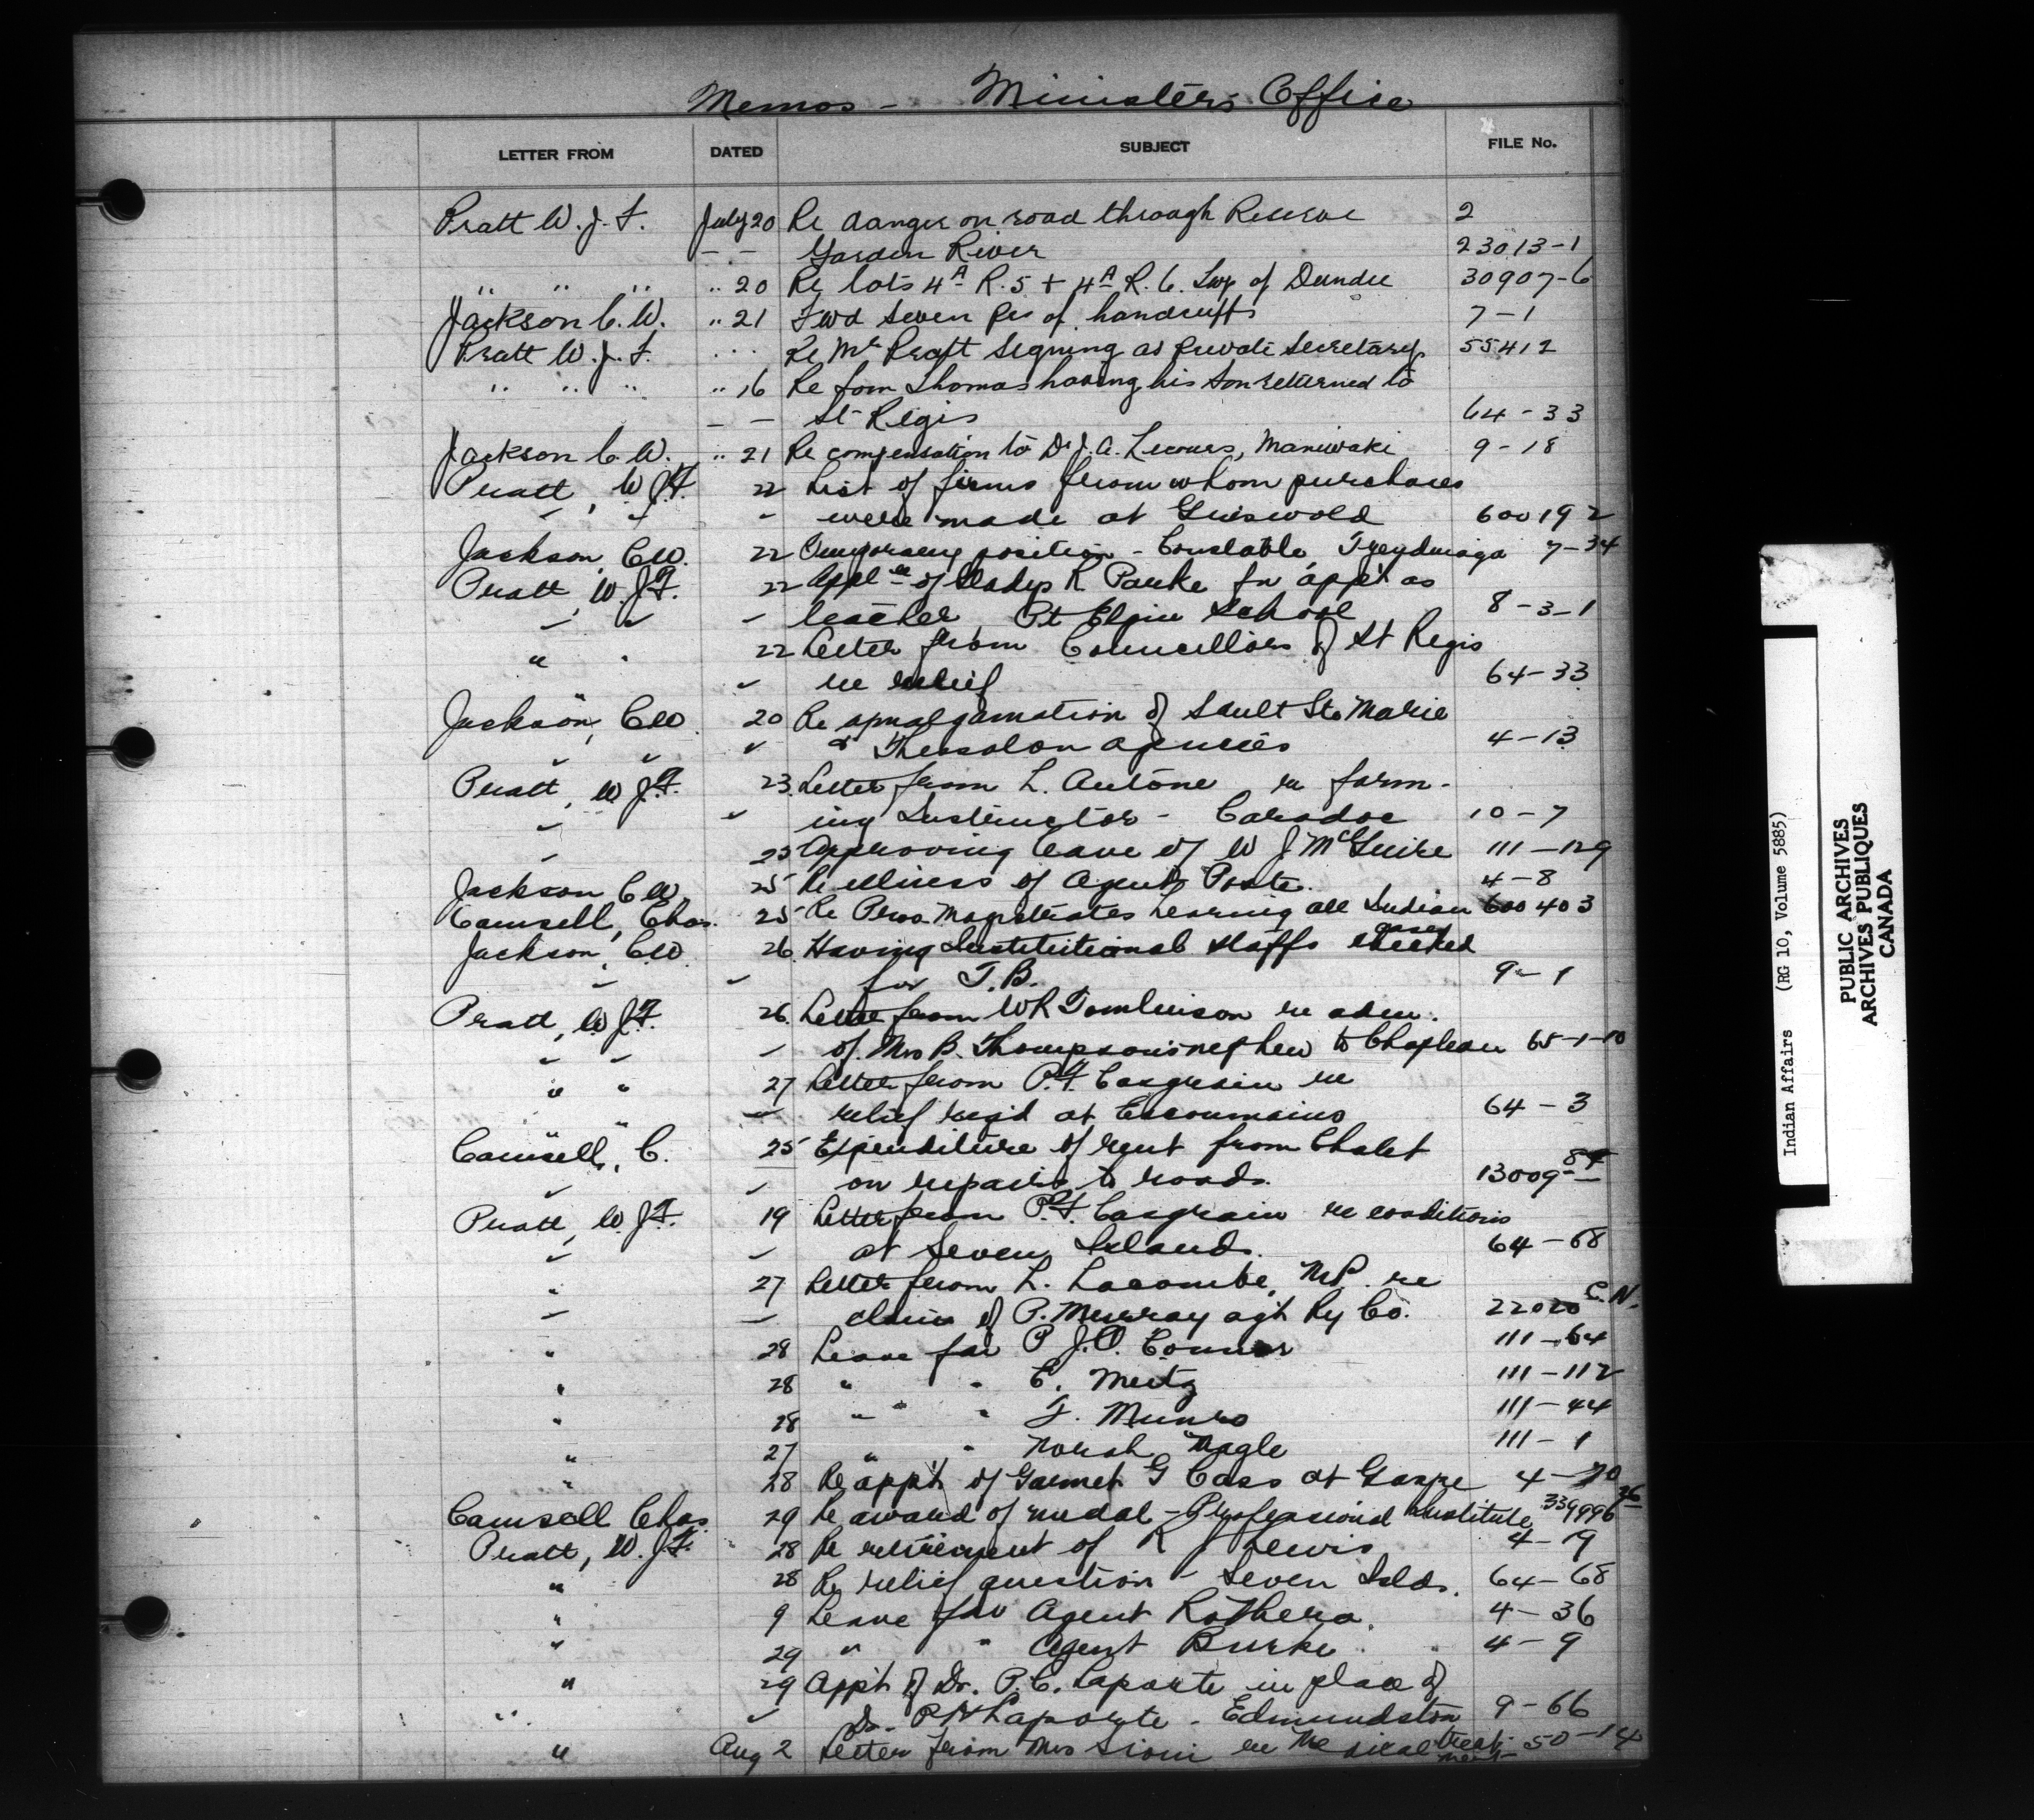 Memos - Minister's Office
LETTER FROM DATED SUBJECT FILE No.
Pratt W. J. F. July 20 Re danger on road through Reserve 2
- - Garden River 23013-1
" " " " 20 Re lots 4A R. 5 + 4A R. 6. Twp of Dundee 30907-6
Jackson C. W. " 21 Fwd seven prs of handcuffs 7-1
Pratt W. J. F. " " Re Mr Pratt signing as private secretary 55412
" " " " 16 Re Tom Thomas having his son returned to
- - St Regis 64-33
Jackson C. W. " 21 Re compensation to Dr. J. A. Lecours, Maniwaki 9-18
Pratt, W J F. 22 List of firms from whom purchases
" " " were made at Griswold 600192
Jackson, C W. 22 Temporary position - Constable Tyendinaga 7-34
Pratt, W. J F. 22 Appl'n of Gladys R Parke for app't as
" " " teacher Pt Elgin School 8-3-1
" " 22 Letter from Councillors of St Regis
" re relief 64-33
Jackson, C W. 20 Re amalgamation of Sault Ste Marie
" " " & Thessalon agencies 4-13
Pratt, W J F. 23. Letter from L. Antone re farm-
" " ing Instructor - Caradoc 10-7
" 25 Approving leave of W J McGuire 111-129
Jackson C W. 25 Re illness of Agent Poste. 4-8
Camsell, Chas. 25 Re Perm. Magistrates hearing all Indian cases 600403
Jackson, C W. 26. Having Institutional staffs checked
" " for T. B. 9-1
Pratt, W J F. 26. Letter from W R Tomlinson re adm.
" " " of Mrs B. Thompson's nephew to Chapleau 65-1-10
" " 27 Letter from P. F. Casgrain re
" " " relief req'd at Escoumains 64-3
Camsell, C. 25 Expenditure of rent from Chalet
" " on repairs to roads. 13009-84
Pratt, W. J F. 19 Letter from P. F. Casgrain re conditions
" " at Seven Islands. 64-68
" 27 Letter from L. Lacombe, M.P. re
" " claim of P. Murray agt Ry Co. 22020 C.N.
" 28 Leave for P J. O. Connor 111-64
" 28 " " E. Meitz 111-112
" 28 " " F. Munro 111-44
" 27 " " Norah Nagle 111-1
" 28 Re app't of Garnet G Cass at Gaspe 4-70
Camsell Chas. 29 Re award of medal - Professional Institute 339996 26
Pratt, W. J F. 28 Re retirement of R J Lewis 4-19
" 28 Re relief question - Seven Islds. 64-68
" 9 Leave for Agent Rothera. 4-36
" 29 " " Agent Burke. 4-9
" 29 App't of Dr. P. C. Laporte in place of
" " Dr. P H Laporte - Edmundston 9-66
" Aug 2 Letter from Mrs Sioui re Medical treat- 50-14
ment
Indian Affairs (RG 10, Volume 5885)
PUBLIC ARCHIVES
ARCHIVES PUBLIQUES
CANADA